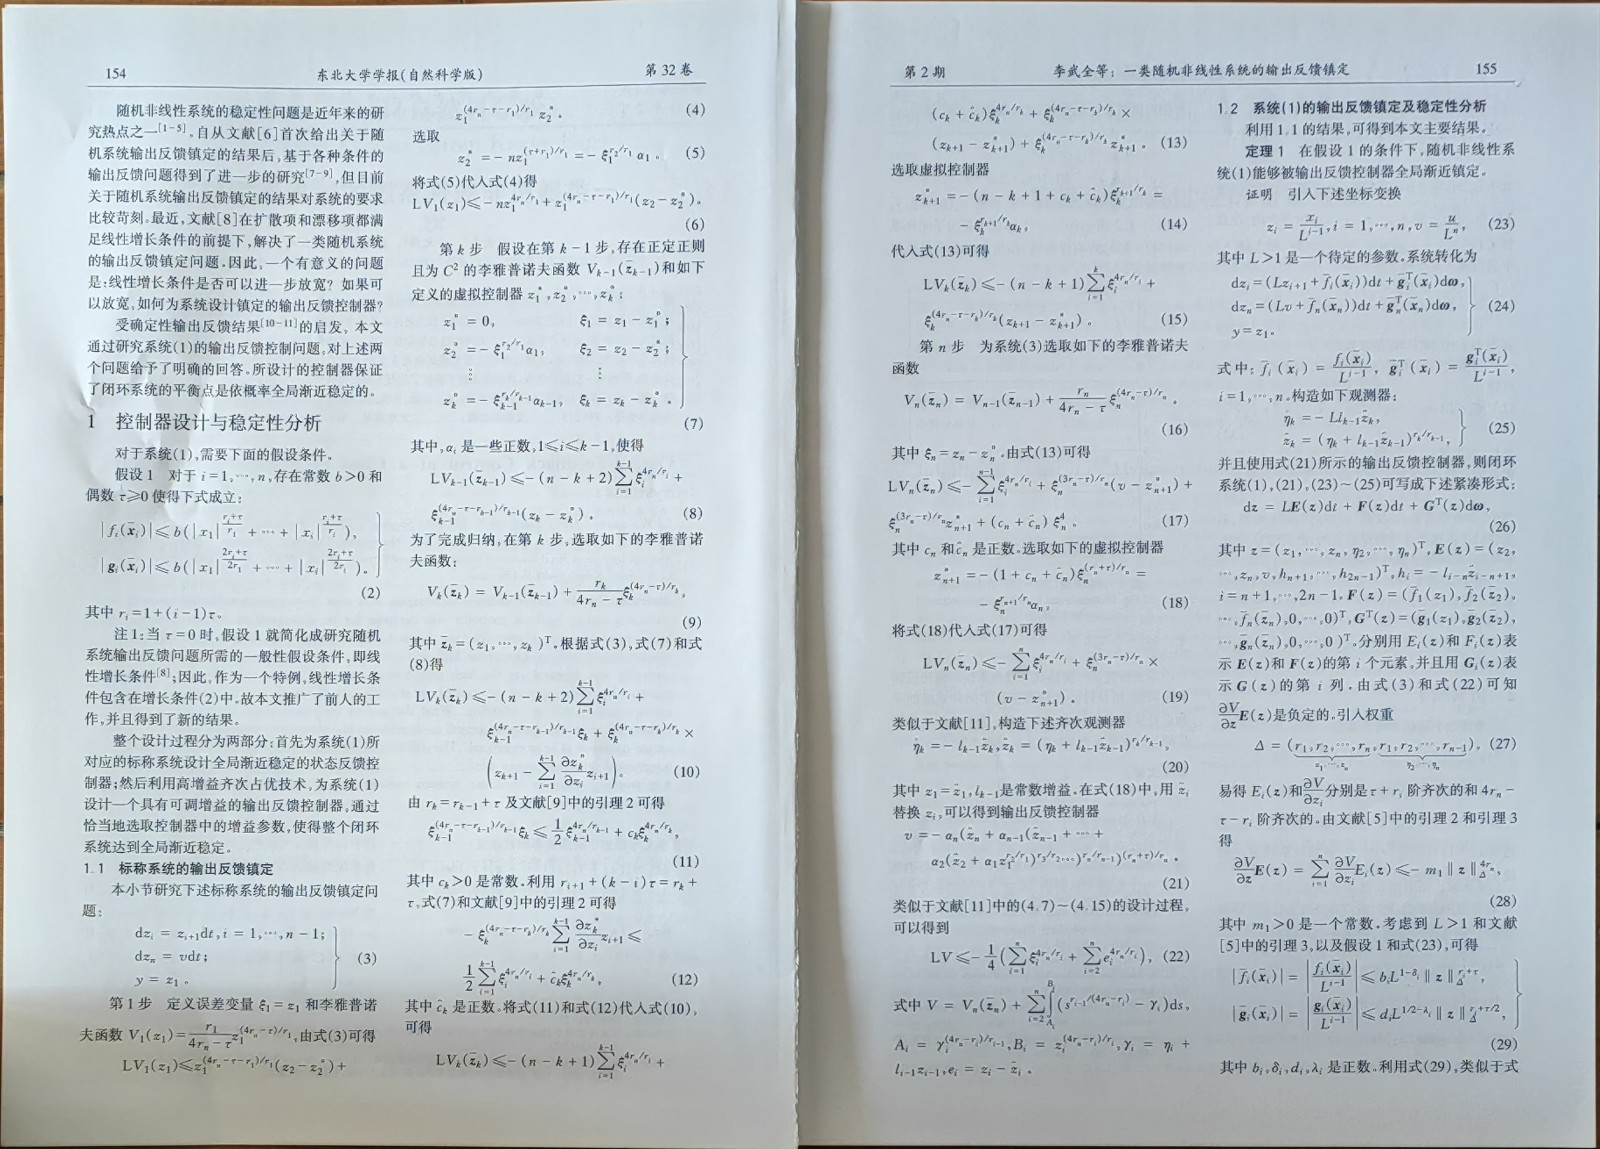 154
东北大学学报(自然科学版)
第 32 卷
随机非线性系统的稳定性问题是近年来的研
究热点之一[1-5],自从文献[6]首次给出关于随
机系统输出反馈镇定的结果后,基于各种条件的
输出反馈问题得到了进一步的研究[7-9],但目前
关于随机系统输出反馈镇定的结果对系统的要求
比较苛刻。最近,文献[8]在扩散项和漂移项都满
足线性增长条件的前提下,解决了一类随机系统
的输出反馈镇定问题.因此,一个有意义的问题
是:线性增长条件是否可以进一步放宽? 如果可
以放宽,如何为系统设计镇定的输出反馈控制器?
受确定性输出反馈结果[10-11]的启发, 本文
通过研究系统(1)的输出反馈控制问题,对上述两
个问题给予了明确的回答。所设计的控制器保证
了闭环系统的平衡点是依概率全局渐近稳定的。
1 控制器设计与稳定性分析
对于系统(1),需要下面的假设条件。
假设 1 对于 i=1,…,n,存在常数 b>0 和
偶数 τ≥0 使得下式成立:
|f_i(x̄_i)|≤b(|x_1|^{(r_i+τ)/r_1}+…+|x_i|^{(r_i+τ)/r_i}),
|g_i(x̄_i)|≤b(|x_1|^{(2r_i+τ)/2r_1}+…+|x_i|^{(2r_i+τ)/2r_i})。
(2)
其中 r_i=1+(i-1)τ。
注 1:当 τ=0 时,假设 1 就简化成研究随机
系统输出反馈问题所需的一般性假设条件,即线
性增长条件[8];因此,作为一个特例,线性增长条
件包含在增长条件(2)中.故本文推广了前人的工
作,并且得到了新的结果。
整个设计过程分为两部分:首先为系统(1)所
对应的标称系统设计全局渐近稳定的状态反馈控
制器;然后利用高增益齐次占优技术,为系统(1)
设计一个具有可调增益的输出反馈控制器,通过
恰当地选取控制器中的增益参数,使得整个闭环
系统达到全局渐近稳定。
1.1 标称系统的输出反馈镇定
本小节研究下述标称系统的输出反馈镇定问
题:
dz_i = z_{i+1}dt,i = 1,…,n-1;
dz_n = vdt;
(3)
y = z_1。
第 1 步 定义误差变量 ξ_1=z_1 和李雅普诺
夫函数 V_1(z_1)=r_1/(4r_n-τ) z_1^{(4r_n-τ)/r_1},由式(3)可得
LV_1(z_1)≤z_1^{(4r_n-τ-r_1)/r_1}(z_2-z_2^*)+
z_1^{(4r_n-τ-r_1)/r_1}z_2^*。 (4)
选取
z_2^*=-nz_1^{(τ+r_1)/r_1}=-ξ_1^{r_2/r_1}α_1。 (5)
将式(5)代入式(4)得
LV_1(z_1)≤-nz_1^{4r_n/r_1}+z_1^{(4r_n-τ-r_1)/r_1}(z_2-z_2^*)。
(6)
第 k 步 假设在第 k-1 步,存在正定正则
且为 C^2 的李雅普诺夫函数 V_{k-1}(z̄_{k-1})和如下
定义的虚拟控制器 z_1^*,z_2^*,…,z_k^*:
z_1^* = 0, ξ_1 = z_1-z_1^*;
z_2^* = -ξ_1^{r_2/r_1}α_1, ξ_2 = z_2-z_2^*;
⋮ ⋮
z_k^* = -ξ_{k-1}^{r_k/r_{k-1}}α_{k-1}, ξ_k = z_k-z_k^*。
(7)
其中,α_i 是一些正数,1≤i≤k-1,使得
LV_{k-1}(z̄_{k-1})≤-(n-k+2)∑_{i=1}^{k-1}ξ_i^{4r_n/r_i}+
ξ_{k-1}^{(4r_n-τ-r_{k-1})/r_{k-1}}(z_k-z_k^*)。 (8)
为了完成归纳,在第 k 步,选取如下的李雅普诺
夫函数:
V_k(z̄_k) = V_{k-1}(z̄_{k-1})+r_k/(4r_n-τ) ξ_k^{(4r_n-τ)/r_k},
(9)
其中 z̄_k=(z_1,…,z_k)^T。根据式(3),式(7)和式
(8)得
LV_k(z̄_k)≤-(n-k+2)∑_{i=1}^{k-1}ξ_i^{4r_n/r_i}+
ξ_{k-1}^{(4r_n-τ-r_{k-1})/r_{k-1}}ξ_k+ξ_k^{(4r_n-τ-r_k)/r_k}×
(z_{k+1}-∑_{i=1}^{k-1}∂z_k^*/∂z_i z_{i+1})。 (10)
由 r_k=r_{k-1}+τ 及文献[9]中的引理 2 可得
ξ_{k-1}^{(4r_n-τ-r_{k-1})/r_{k-1}}ξ_k≤1/2 ξ_{k-1}^{4r_n/r_{k-1}}+c_kξ_k^{4r_n/r_k},
(11)
其中 c_k>0 是常数.利用 r_{i+1}+(k-i)τ=r_k+
τ,式(7)和文献[9]中的引理 2 可得
-ξ_k^{(4r_n-τ-r_k)/r_k}∑_{i=1}^{k-1}∂z_k^*/∂z_i z_{i+1}≤
1/2 ∑_{i=1}^{k-1}ξ_i^{4r_n/r_i}+ĉ_kξ_k^{4r_n/r_k}, (12)
其中 ĉ_k 是正数.将式(11)和式(12)代入式(10),
可得
LV_k(z̄_k)≤-(n-k+1)∑_{i=1}^{k-1}ξ_i^{4r_n/r_i}+
第 2 期
李武全等: 一类随机非线性系统的输出反馈镇定
155
(c_k+ĉ_k)ξ_k^{4r_n/r_k}+ξ_k^{(4r_n-τ-r_k)/r_k}×
(z_{k+1}-z_{k+1}^*)+ξ_k^{(4r_n-τ-r_k)/r_k}z_{k+1}^*。 (13)
选取虚拟控制器
z_{k+1}^*=-(n-k+1+c_k+ĉ_k)ξ_k^{r_{k+1}/r_k}=
-ξ_k^{r_{k+1}/r_k}α_k, (14)
代入式(13)可得
LV_k(z̄_k)≤-(n-k+1)∑_{i=1}^{k}ξ_i^{4r_n/r_i}+
ξ_k^{(4r_n-τ-r_k)/r_k}(z_{k+1}-z_{k+1}^*)。 (15)
第 n 步 为系统(3)选取如下的李雅普诺夫
函数
V_n(z̄_n) = V_{n-1}(z̄_{n-1})+r_n/(4r_n-τ) ξ_n^{(4r_n-τ)/r_n}。
(16)
其中 ξ_n=z_n-z_n^*.由式(13)可得
LV_n(z̄_n)≤-∑_{i=1}^{n-1}ξ_i^{4r_n/r_i}+ξ_n^{(3r_n-τ)/r_n}(v-z_{n+1}^*)+
ξ_n^{(3r_n-τ)/r_n}z_{n+1}^*+(c_n+ĉ_n)ξ_n^4。 (17)
其中 c_n 和ĉ_n 是正数。选取如下的虚拟控制器
z_{n+1}^*=-(1+c_n+ĉ_n)ξ_n^{(r_n+τ)/r_n}=
-ξ_n^{r_{n+1}/r_n}α_n, (18)
将式(18)代入式(17)可得
LV_n(z̄_n)≤-∑_{i=1}^{n}ξ_i^{4r_n/r_i}+ξ_n^{(3r_n-τ)/r_n}×
(v-z_{n+1}^*)。 (19)
类似于文献[11],构造下述齐次观测器
η̇_k=-l_{k-1}ẑ_k,ẑ_k=(η_k+l_{k-1}ẑ_{k-1})^{r_k/r_{k-1}},
(20)
其中 z_1=ẑ_1,l_{k-1}是常数增益.在式(18)中,用 ẑ_i
替换 z_i,可以得到输出反馈控制器
v=-α_n(ẑ_n+α_{n-1}(ẑ_{n-1}+…+
α_2(ẑ_2+α_1z_1^{r_2/r_1})^{r_3/r_2}…)^{r_n/r_{n-1}})^{(r_n+τ)/r_n}。
(21)
类似于文献[11]中的(4.7)~(4.15)的设计过程,
可以得到
LV≤-1/4(∑_{i=1}^{n}ξ_i^{4r_n/r_i}+∑_{i=2}^{n}e_i^{4r_n/r_i}), (22)
式中 V = V_n(z̄_n)+∑_{i=2}^{n}∫_{A_i}^{B_i}(s^{r_{i-1}/(4r_n-r_i)}-γ_i)ds,
A_i = γ_i^{(4r_n-r_i)/r_{i-1}},B_i = z_i^{(4r_n-r_i)/r_i},γ_i = η_i+
l_{i-1}z_{i-1},e_i = z_i-ẑ_i。
1.2 系统(1)的输出反馈镇定及稳定性分析
利用 1.1 的结果,可得到本文主要结果。
定理 1 在假设 1 的条件下,随机非线性系
统(1)能够被输出反馈控制器全局渐近镇定。
证明 引入下述坐标变换
z_i=x_i/L^{i-1},i=1,…,n,v=u/L^n, (23)
其中 L>1 是一个待定的参数.系统转化为
dz_i=(Lz_{i+1}+f̄_i(x̄_i))dt+ḡ_i^T(x̄_i)dω,
dz_n=(Lv+f̄_n(x̄_n))dt+ḡ_n^T(x̄_n)dω, (24)
y=z_1。
式中: f̄_i(x̄_i) = f_i(x̄_i)/L^{i-1}, ḡ_i^T(x̄_i) = g_i^T(x̄_i)/L^{i-1},
i=1,…,n.构造如下观测器:
η̇_k=-Ll_{k-1}ẑ_k,
ẑ_k=(η_k+l_{k-1}ẑ_{k-1})^{r_k/r_{k-1}}, (25)
并且使用式(21)所示的输出反馈控制器,则闭环
系统(1),(21),(23)~(25)可写成下述紧凑形式:
dz = LE(z)dt+F(z)dt+G^T(z)dω,
(26)
其中 z=(z_1,…,z_n,η_2,…,η_n)^T,E(z)=(z_2,
…,z_n,v,h_{n+1},…,h_{2n-1})^T,h_i=-l_{i-n}ẑ_{i-n+1},
i=n+1,…,2n-1。F(z)=(f̄_1(z_1),f̄_2(z̄_2),
…,f̄_n(z̄_n),0,…,0)^T,G^T(z)=(ḡ_1(z_1),ḡ_2(z̄_2),
…,ḡ_n(z̄_n),0,…,0)^T.分别用 E_i(z)和 F_i(z)表
示 E(z)和 F(z)的第 i 个元素,并且用 G_i(z)表
示 G(z)的第 i 列.由式(3)和式(22)可知
∂V/∂z E(z)是负定的。引入权重
Δ = (r_1,r_2,…,r_n,r_1,r_2,…,r_{n-1}), (27)
z_1,…,z_n η_2,…,η_n
易得 E_i(z)和∂V/∂z_i分别是τ+r_i 阶齐次的和 4r_n-
τ-r_i 阶齐次的.由文献[5]中的引理 2 和引理 3
得
∂V/∂z E(z) = ∑_{i=1}^{n}∂V/∂z_i E_i(z)≤-m_1‖z‖_Δ^{4r_n},
(28)
其中 m_1>0 是一个常数.考虑到 L>1 和文献
[5]中的引理 3,以及假设 1 和式(23),可得
|f̄_i(x̄_i)| = |f_i(x̄_i)/L^{i-1}|≤b_iL^{1-δ_i}‖z‖_Δ^{r_i+τ},
|ḡ_i(x̄_i)| = |g_i(x̄_i)/L^{i-1}|≤d_iL^{1/2-λ_i}‖z‖_Δ^{r_i+τ/2},
(29)
其中 b_i,δ_i,d_i,λ_i 是正数。利用式(29),类似于式